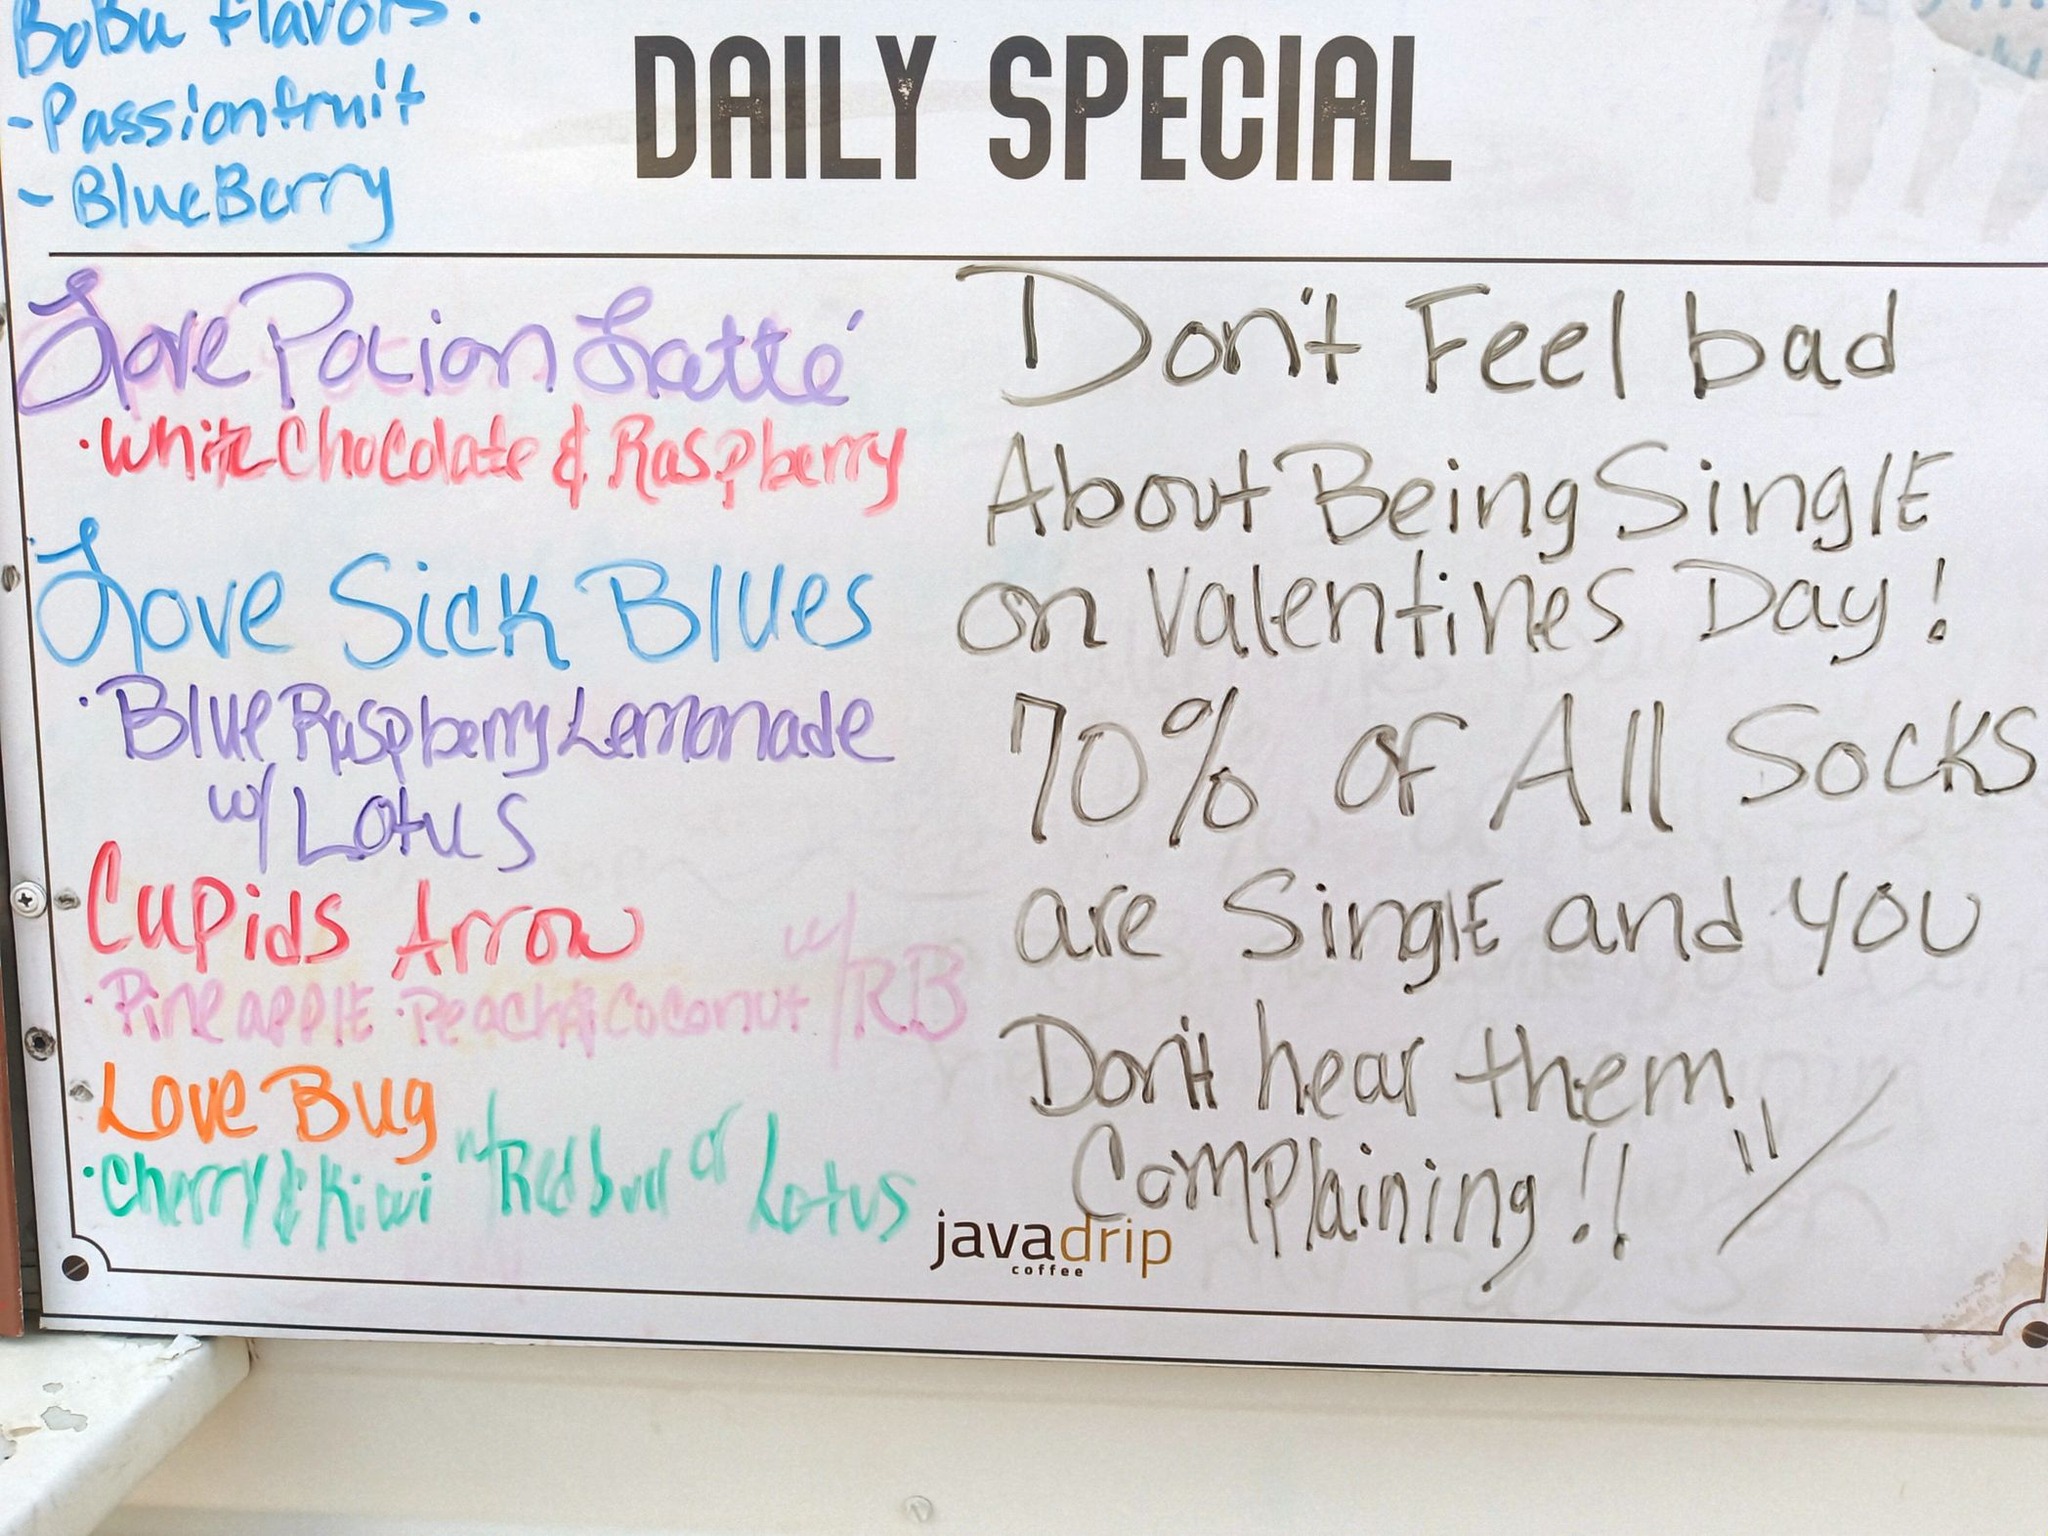 BoBa flavors:
- Passionfruit
- BlueBerry
DAILY SPECIAL
Love Potion Latté
· White Chocolate & Raspberry
Love Sick Blues
· Blue Raspberry Lemonade
w/ Lotus
Cupids Arrow
· Pineapple · Peach & Coconut w/ RB
Love Bug
· Cherry & Kiwi w/ Redbull or Lotus
Don't Feel bad
About Being Single
on Valentines Day!
70% of All Socks
are Single and you
Don't hear them
Complaining!!
javadrip
coffee